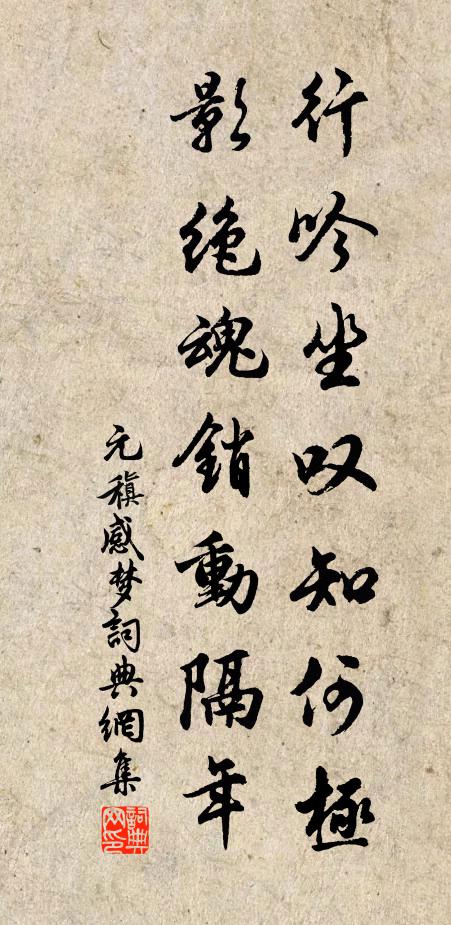 行吟坐叹知何極
影绝魂銷動隔年
元稹感梦詞典網集
詞典网印